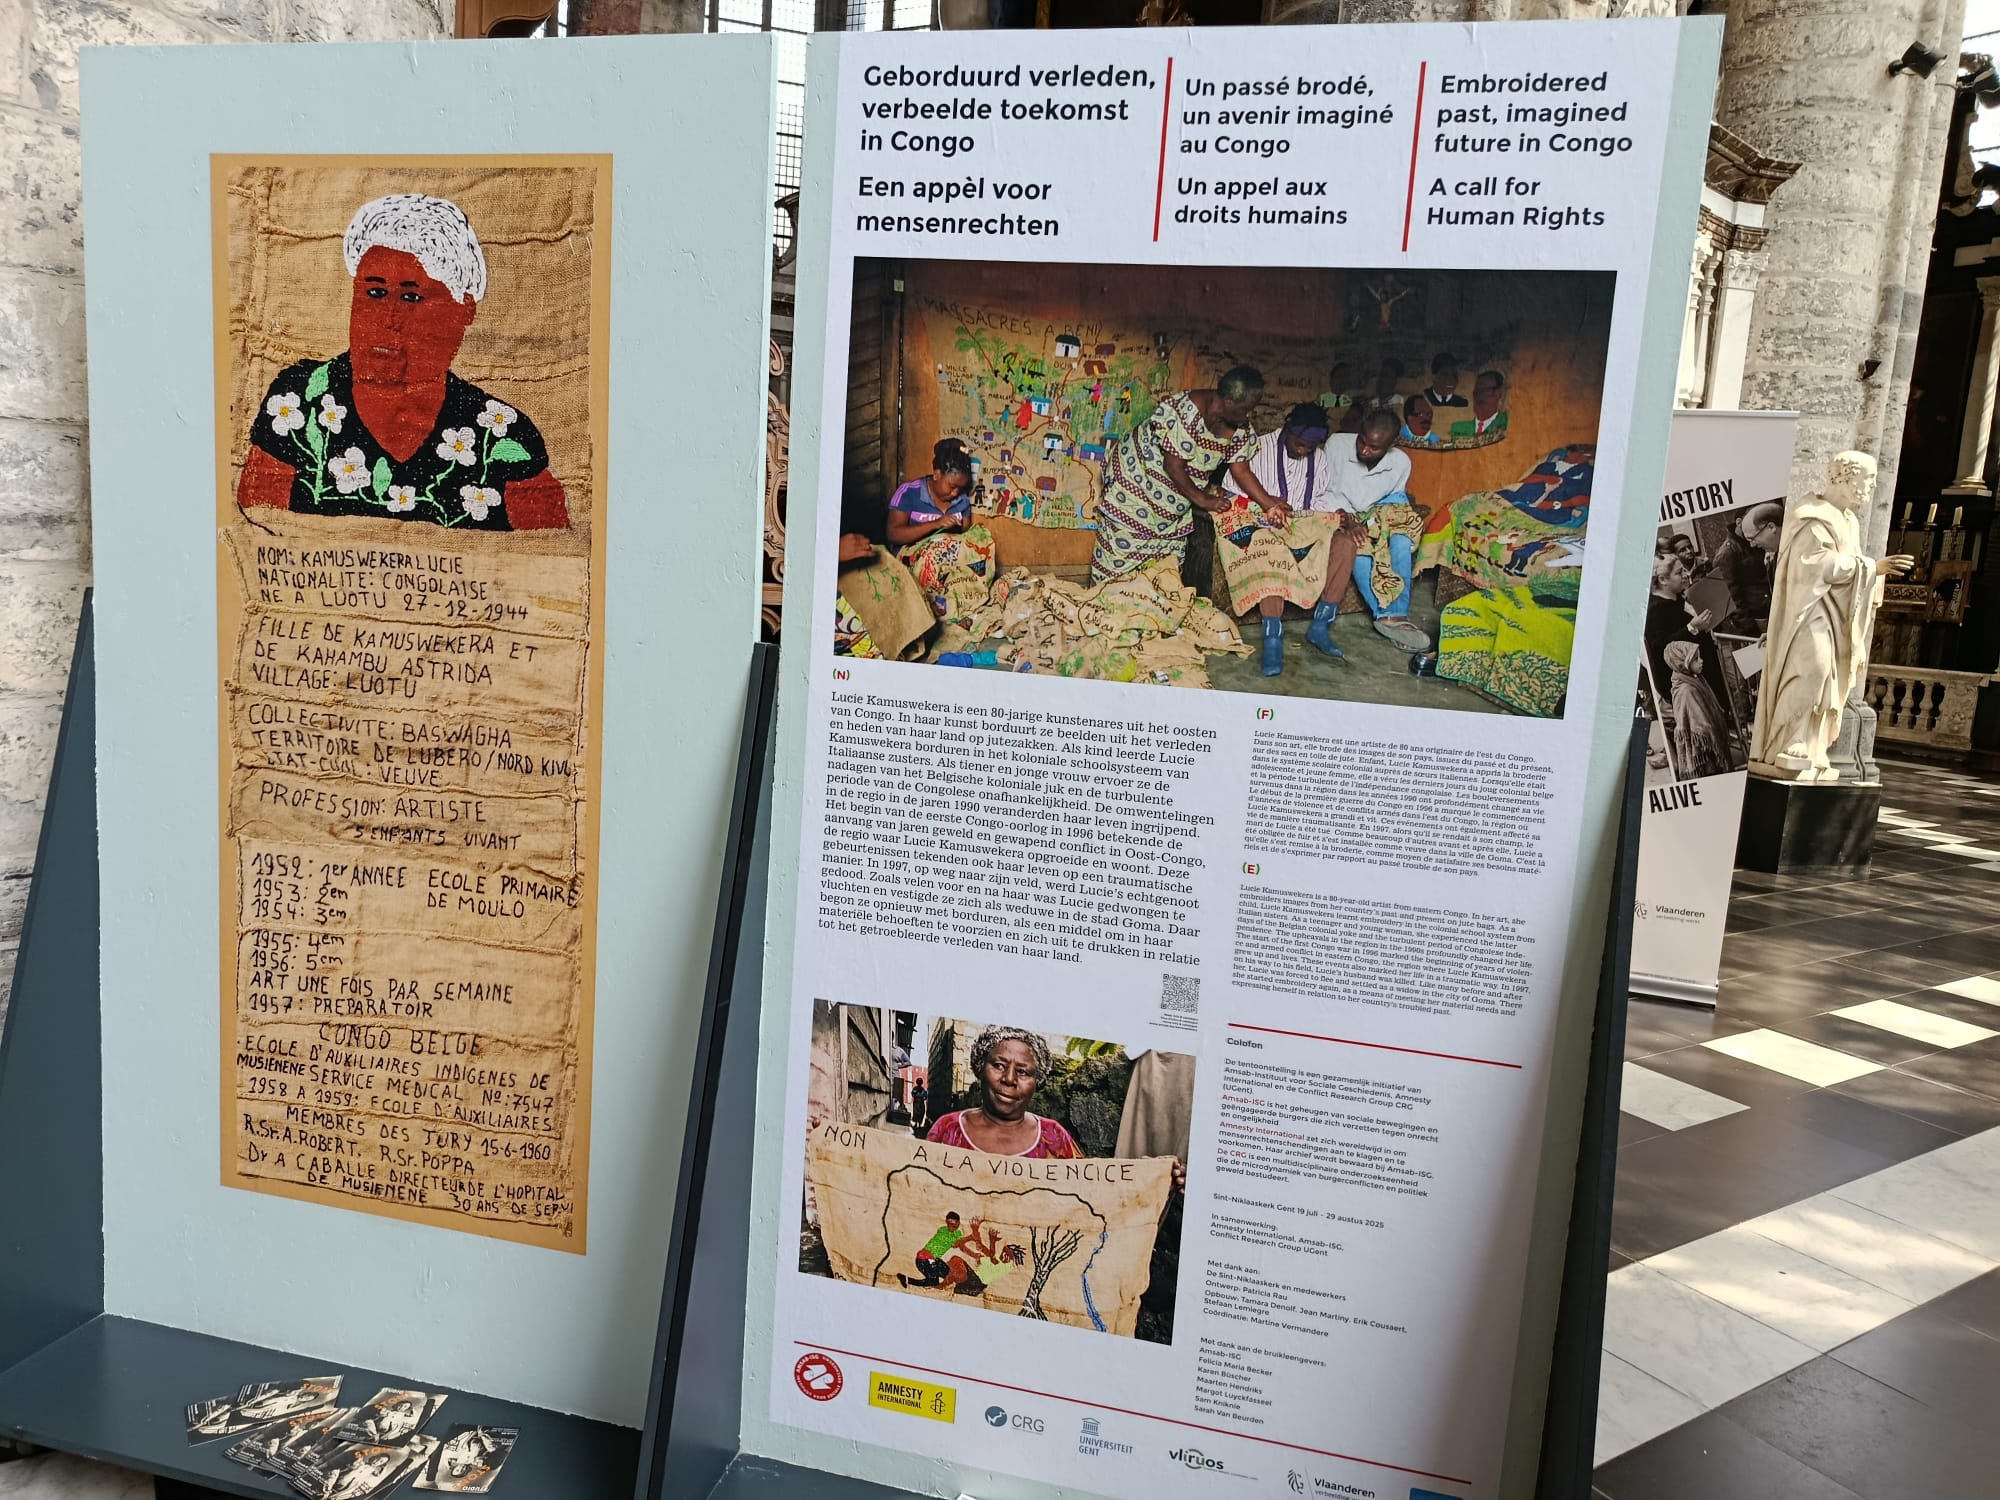 NOM: KAMUSWEKERA LUCIE
NATIONALITE: CONGOLAISE
NE A LUOTU 27-12-1944
FILLE DE KAMUSWEKERA ET
DE KAHAMBU ASTRIDA
VILLAGE: LUOTU
COLLECTIVITE: BASWAGHA
TERRITOIRE DE LUBERO / NORD KIVU
VEUVE
PROFESSION: ARTISTE
5 ENFANTS VIVANT
1952: 1er ANNEE ECOLE PRIMAIRE
1953: 2em DE MOULO
1954: 3em
1955: 4em
1956: 5em
ART UNE FOIS PAR SEMAINE
1957: PREPARATOIR
CONGO BELGE
ECOLE D'AUXILIAIRES INDIGENES DE
MUSIENENE SERVICE MEDICAL No: 7547
1958 A 1959: ECOLE D'AUXILIAIRES
MEMBRES DES JURY 15-6-1960
R.Sr.A.ROBERT. R.Sr. POPPA
Dr A CABALLE DIRECTEUR DE L'HOPITAL
DE MUSIENENE 30 ANS DE SERVI
Geborduurd verleden,
verbeelde toekomst
in Congo
Een appèl voor
mensenrechten
Un passé brodé,
un avenir imaginé
au Congo
Un appel aux
droits humains
Embroidered
past, imagined
future in Congo
A call for
Human Rights
MASSACRES A BENI
(N)
Lucie Kamuswekera is een 80-jarige kunstenares uit het oosten
van Congo. In haar kunst borduurt ze beelden uit het verleden
en heden van haar land op jutezakken. Als kind leerde Lucie
Kamuswekera borduren in het koloniale schoolsysteem van
Italiaanse zusters. Als tiener en jonge vrouw ervoer ze de
nadagen van het Belgische koloniale juk en de turbulente
periode van de Congolese onafhankelijkheid. De omwentelingen
in de regio in de jaren 1990 veranderden haar leven ingrijpend.
Het begin van de eerste Congo-oorlog in 1996 betekende de
aanvang van jaren geweld en gewapend conflict in Oost-Congo,
de regio waar Lucie Kamuswekera opgroeide en woont. Deze
gebeurtenissen tekenden ook haar leven op een traumatische
manier. In 1997, op weg naar zijn veld, werd Lucie's echtgenoot
gedood. Zoals velen voor en na haar was Lucie gedwongen te
vluchten en vestigde ze zich als weduwe in de stad Goma. Daar
begon ze opnieuw met borduren, als een middel om in haar
materiële behoeften te voorzien en zich uit te drukken in relatie
tot het getroebleerde verleden van haar land.
(F)
Lucie Kamuswekera est une artiste de 80 ans originaire de l'est du Congo.
Dans son art, elle brode des images de son pays, issues du passé et du présent,
sur des sacs en toile de jute. Enfant, Lucie Kamuswekera a appris la broderie
dans le système scolaire colonial auprès de sœurs italiennes. Lorsqu'elle était
adolescente et jeune femme, elle a vécu les derniers jours du joug colonial belge
et la période turbulente de l'indépendance congolaise. Les bouleversements
survenus dans la région dans les années 1990 ont profondément changé sa vie.
Le début de la première guerre du Congo en 1996 a marqué le commencement
d'années de violence et de conflits armés dans l'est du Congo, la région où
Lucie Kamuswekera a grandi et vit. Ces événements ont également affecté sa
vie de manière traumatisante. En 1997, alors qu'il se rendait à son champ, le
mari de Lucie a été tué. Comme beaucoup d'autres avant et après elle, Lucie a
été obligée de fuir et s'est installée comme veuve dans la ville de Goma. C'est là
qu'elle s'est remise à la broderie, comme moyen de satisfaire ses besoins maté-
riels et de s'exprimer par rapport au passé trouble de son pays.
(E)
Lucie Kamuswekera is a 80-year-old artist from eastern Congo. In her art, she
embroiders images from her country's past and present on jute bags. As a
child, Lucie Kamuswekera learnt embroidery in the colonial school system from
Italian sisters. As a teenager and young woman, she experienced the latter
days of the Belgian colonial yoke and the turbulent period of Congolese inde-
pendence. The upheavals in the region in the 1990s profoundly changed her life.
The start of the first Congo war in 1996 marked the beginning of years of violen-
ce and armed conflict in eastern Congo, the region where Lucie Kamuswekera
grew up and lives. These events also marked her life in a traumatic way. In 1997,
on his way to his field, Lucie's husband was killed. Like many before and after
her, Lucie was forced to flee and settled as a widow in the city of Goma. There
she started embroidery again, as a means of meeting her material needs and
expressing herself in relation to her country's troubled past.
NON A LA VIOLENCICE
Colofon
De tentoonstelling is een gezamenlijk initiatief van
Amsab-Instituut voor Sociale Geschiedenis, Amnesty
International en de Conflict Research Group CRG
(UGent).
Amsab-ISG is het geheugen van sociale bewegingen en
geëngageerde burgers die zich verzetten tegen onrecht
en ongelijkheid.
Amnesty International zet zich wereldwijd in om
mensenrechtenschendingen aan te klagen en te
voorkomen. Haar archief wordt bewaard bij Amsab-ISG.
De CRG is een multidisciplinaire onderzoekseenheid
die de microdynamiek van burgerconflicten en politiek
geweld bestudeert.
Sint-Niklaaskerk Gent 19 juli - 29 austus 2025
In samenwerking:
Amnesty International, Amsab-ISG,
Conflict Research Group UGent
Met dank aan:
De Sint-Niklaaskerk en medewerkers
Ontwerp: Patricia Rau
Opbouw: Tamara Denolf, Jean Martiny, Erik Cousaert,
Stefaan Lemiegre
Coördinatie: Martine Vermandere
Met dank aan de bruikleengevers:
Amsab-ISG
Felicia Maria Becker
Karen Büscher
Maarten Hendriks
Margot Luyckfasseel
Sam Kniknie
Sarah Van Beurden
AMSAB-ISG
AMNESTY
INTERNATIONAL
CRG
UNIVERSITEIT
GENT
vliruos
Vlaanderen
verbeelding werkt
HISTORY
ALIVE
Vlaanderen
verbeelding werkt